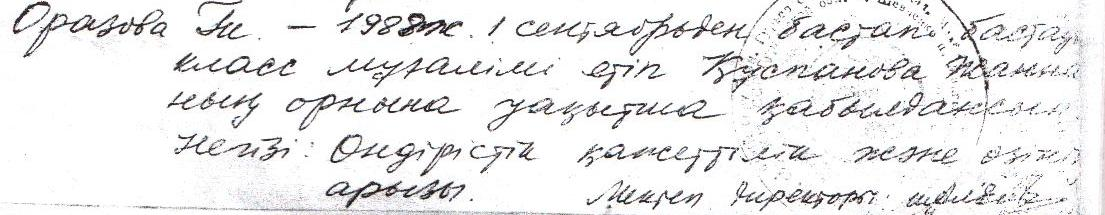 Оразова Гн. – 1988ж. 1 сентябрьден бастап бастау
класс мұғалімі етіп Құспанова Жанна
ның орнына уақытша қабылдансын
Негізі: Өндірістік қажеттілік және өзінің
арызы. Мектеп директоры